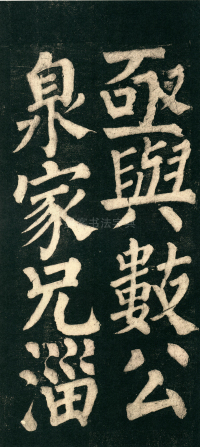 亟與數公
泉家兄淄